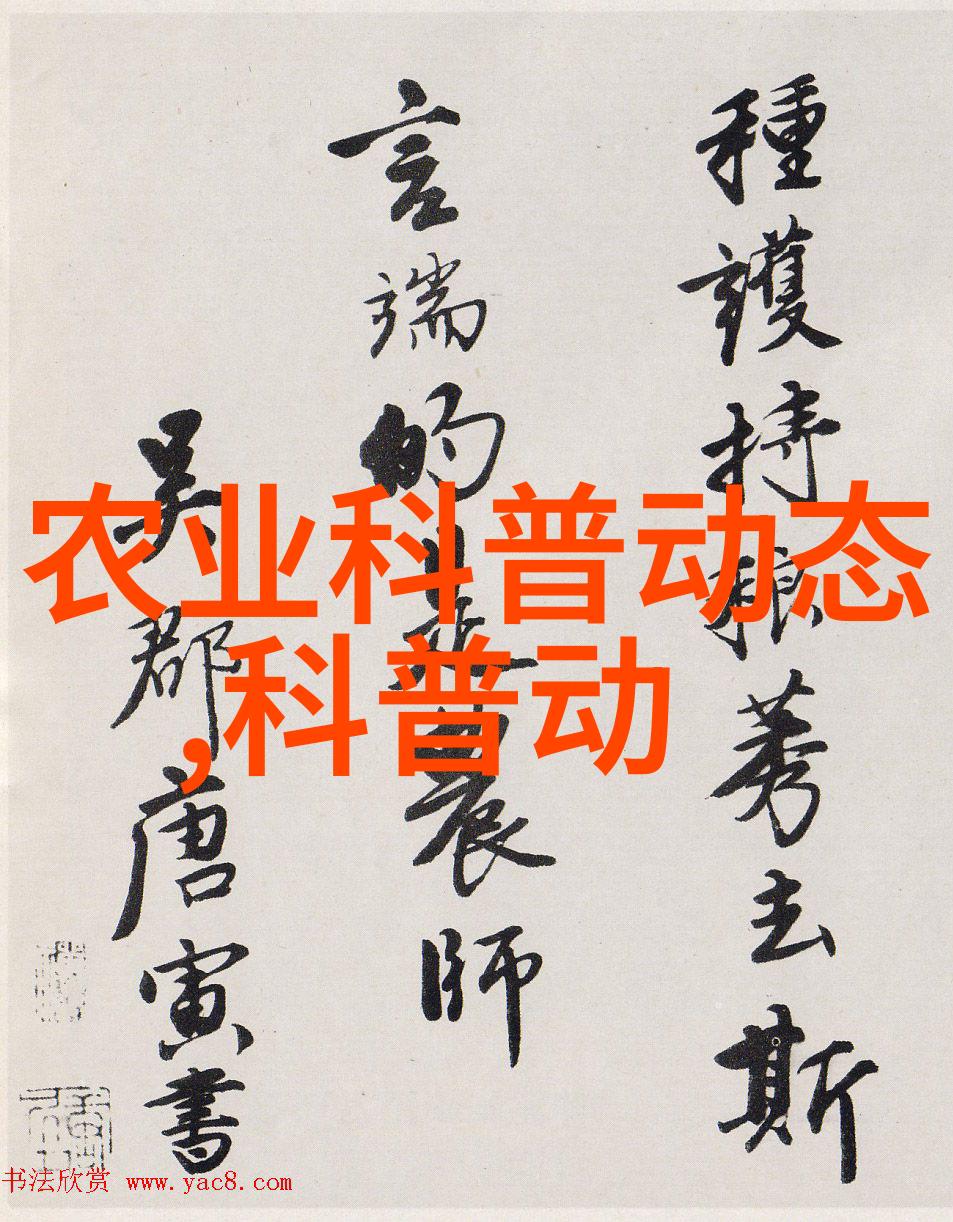 種護持稂莠去斯
言端的農師
吳郡唐寅書
农业科普动态
,科普动
书法欣赏 www.yac8.com